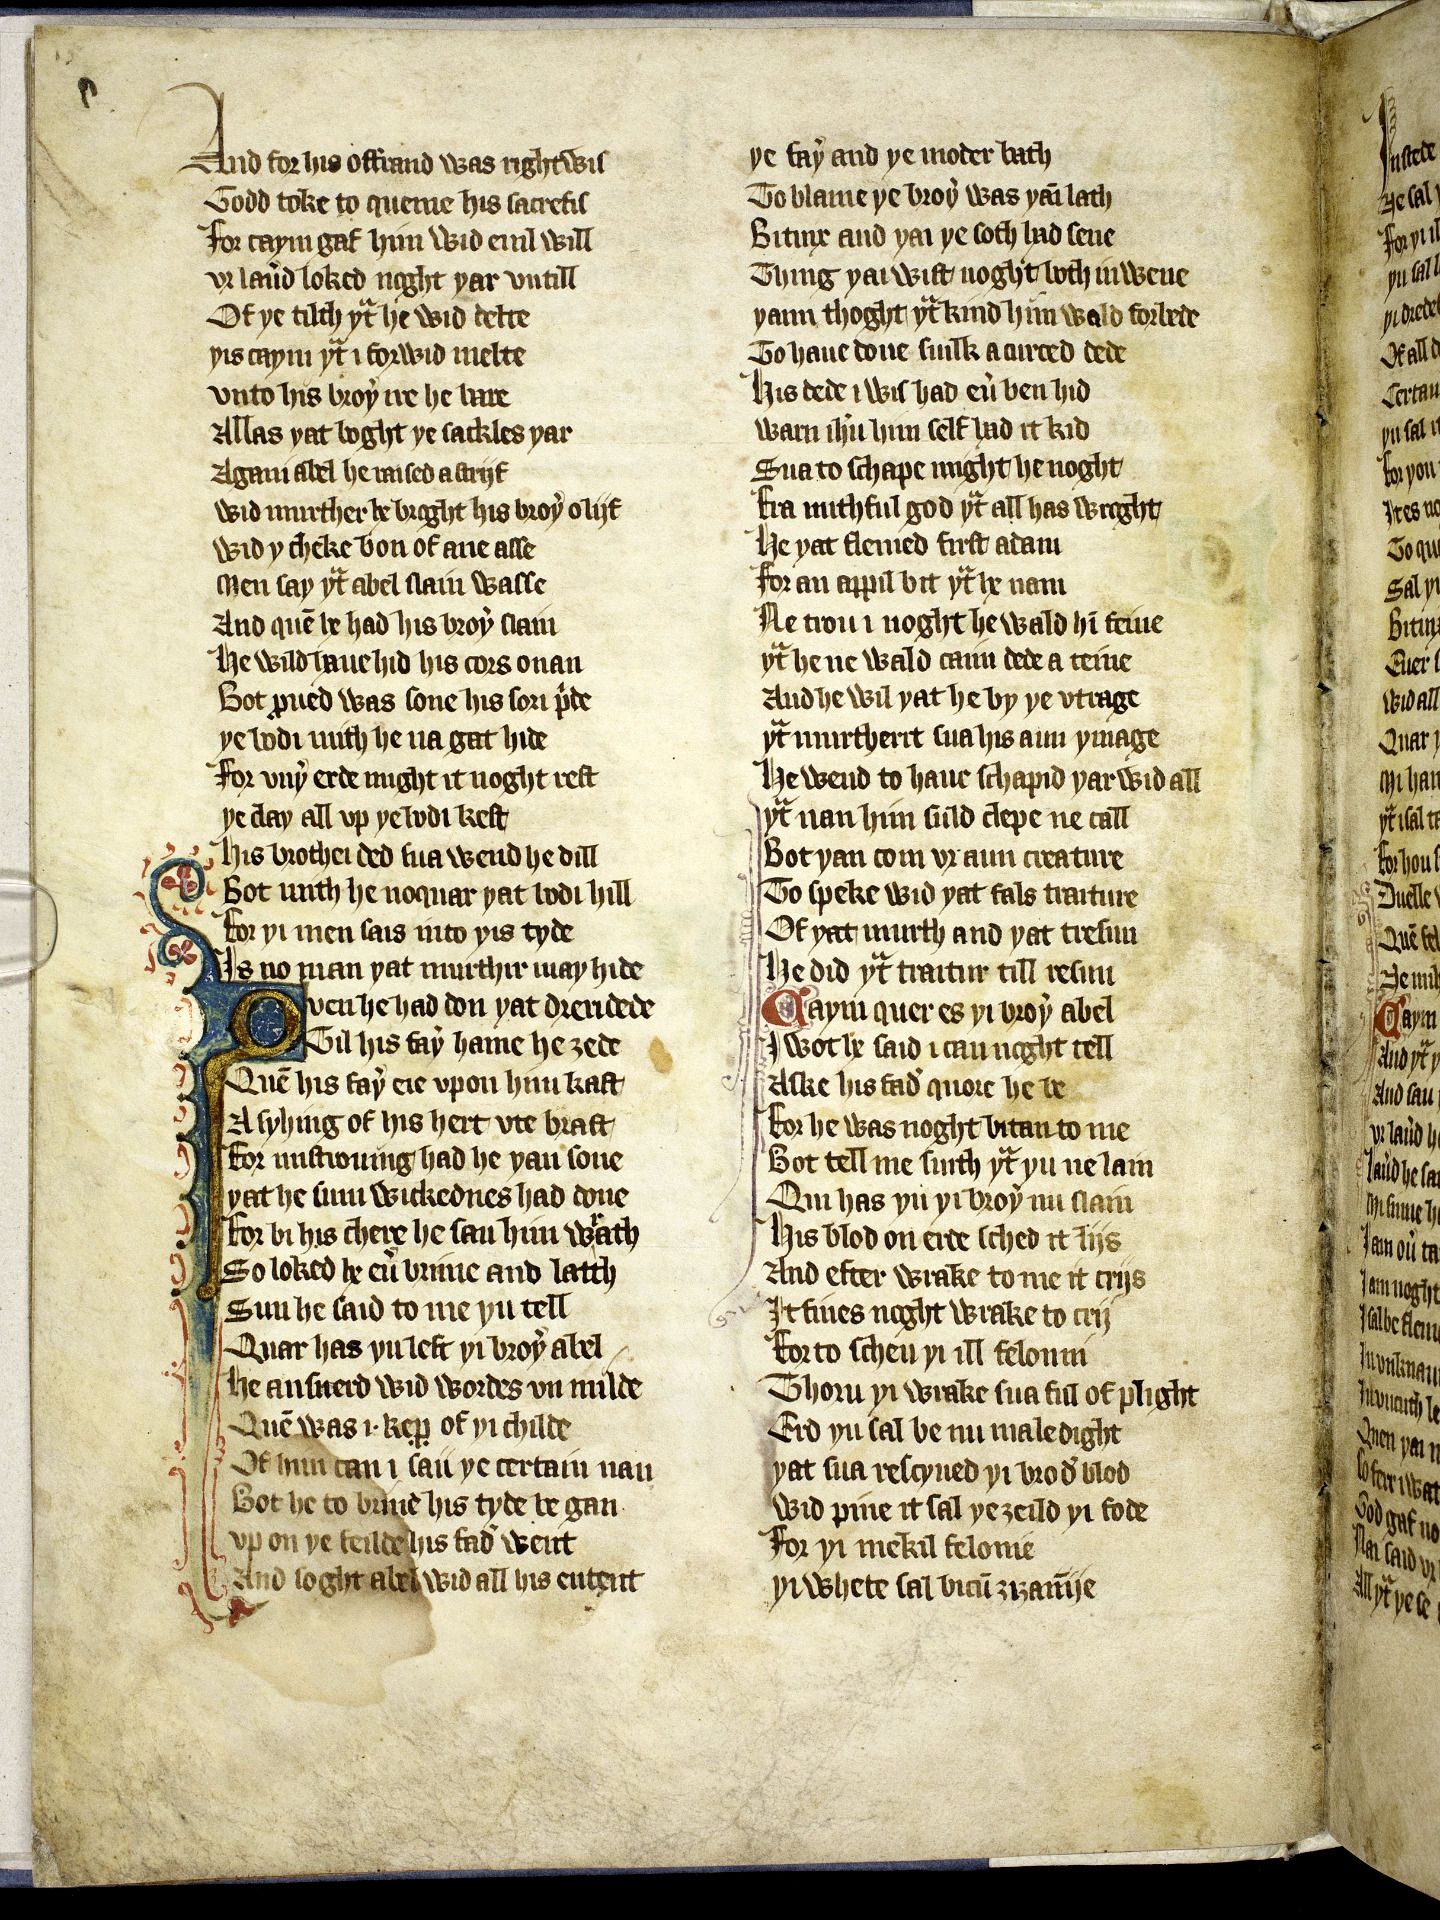 And for his offrand was rightwis
Godd toke to queme his sacrefis
For caym gaf him wid euil will
vr lauͥd loked noght yar vntill
Of ye tilth yͭ he wid delte
yis caym yͭ i forwid melte
vnto his broyͥ ire he bare
Allas yat boght ye sackles yar
Again abel he raised a strijf
wid murther he broght his broyͥ o lijf
wid y cheke bon of ane asse
Men say yͭ abel slain wasse
And quē he had his broyͥ slain
He wild haue hid his cors onan
Bot ꝓued was sone his sori pͥde
ye bodi mith he na gat hide
For vnyͥ erde might it noght rest
ye clay all vp ye bodi kest
his brother ded sua wend he dill
Bot mith he noquar yat bodi hill
For yi men sais into yis tyde
Is no man yat murthir may hide
Quen he had don yat dreri dede
Til his fayͥ hame he zede
Quē his fayͥ eie vpon him kast
A syhing of his hert vte brast
For mistrouing had he yan sone
yat he sum wickednes had done
For bi his chere he sau him wrath
So loked he euͥ brime and lath
Sun he said to me yu tell
Quar has yu left yi broyͥ abel
He ansuerd wid wordes vn milde
Quē was i. kep̱ of yi childe
Of him can i sau ye certain nan
Bot he to brine his tyde be gan
vp on ye feilde his fadͥ went
And soght abel wid all his entent
ye fayͥ and ye moder bath
To blame ye broyͥ was yāi lath
Bitinx and yai ye soth had sene
Thing yai wist noght both in wene
yam thoght yͭ kind him wald forbede
To haue done suilk a curced dede
His dede i wis had euͥ ben hid
warn ihū him self had it kid
Sua to schape might he noght
Fra mithful god yͭ all has wroght
He yat flemed first adam
For an appil bit yͭ he nam
Ne trou i noght he wald hī feine
yͭ he ne wald caim dede a teine
And he wil yat he by ye vtrage
yͭ murtherit sua his aun ymage
He wend to haue schapid yar wid all
yͭ nan him suld clepe ne call
Bot yan com vr aun creature
To speke wid yat fals traiture
Of yat murth and yat tresun
He did yͭ traitur till resun
Caym quer es yi broyͥ abel
I wot he said i can noght tell
Aske his fadͥ quore he be
For he was noght bitan to me
Bot tell me suith yͭ yu ne lain
Qui has yu yi broyͥ nu slain
His blod on erde sched it lijs
And efter wrake to me it crijs
It fines noght wrake to crij
For to scheu yi ill feloum
Thoru yi wrake sua ful of plight
Erd yu sal be nu maledight
yat sua rescyued yi brodͥ blod
wid pine it sal ye zeild yi fode
For yi mekil felonie
yi whete sal bicū zizannije